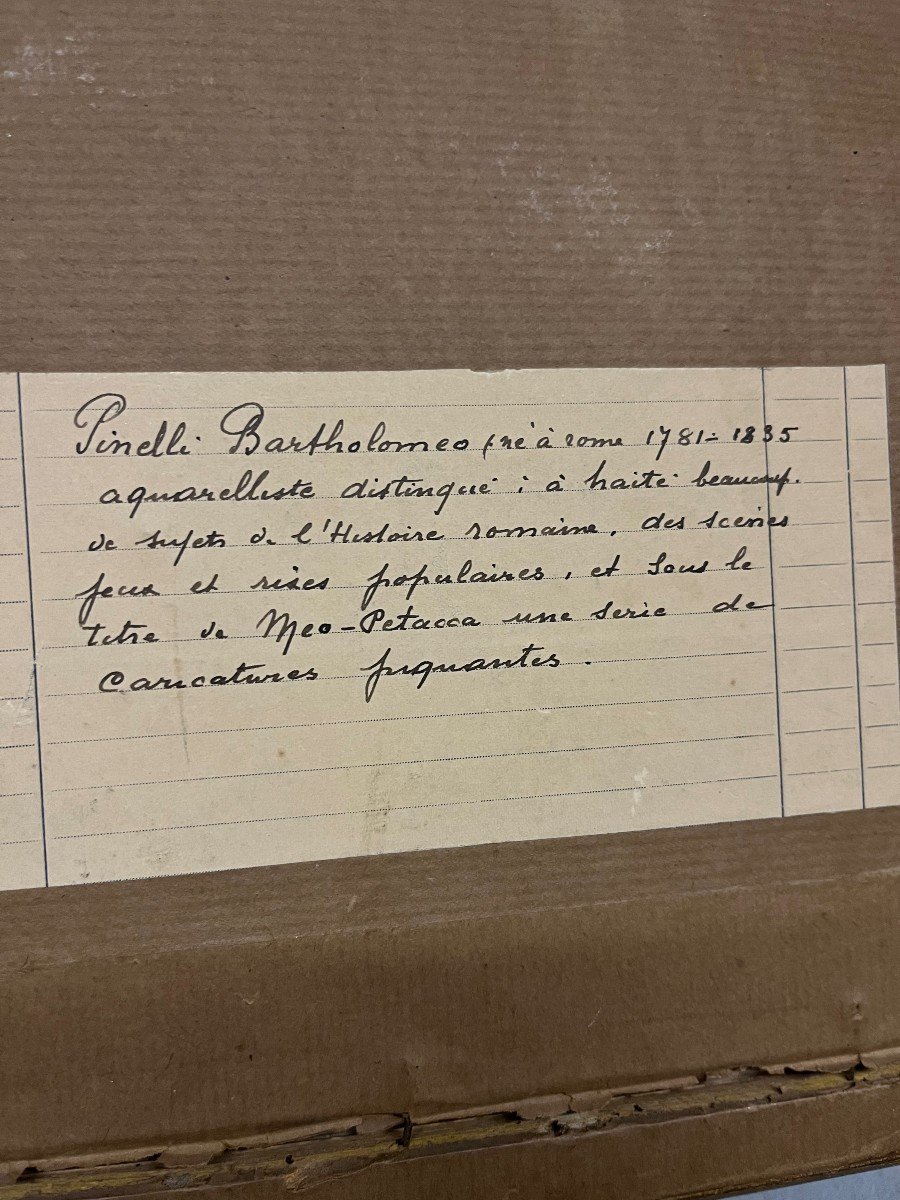 Pinelli Bartholomeo (né à rome 1781-1835
aquarelliste distingué ; à traité beaucoup.
de sujets de l'Histoire romaine, des scènes
jeux et rixes populaires, et sous le
titre de Meo-Petacca une serie de
Caricatures piquantes.